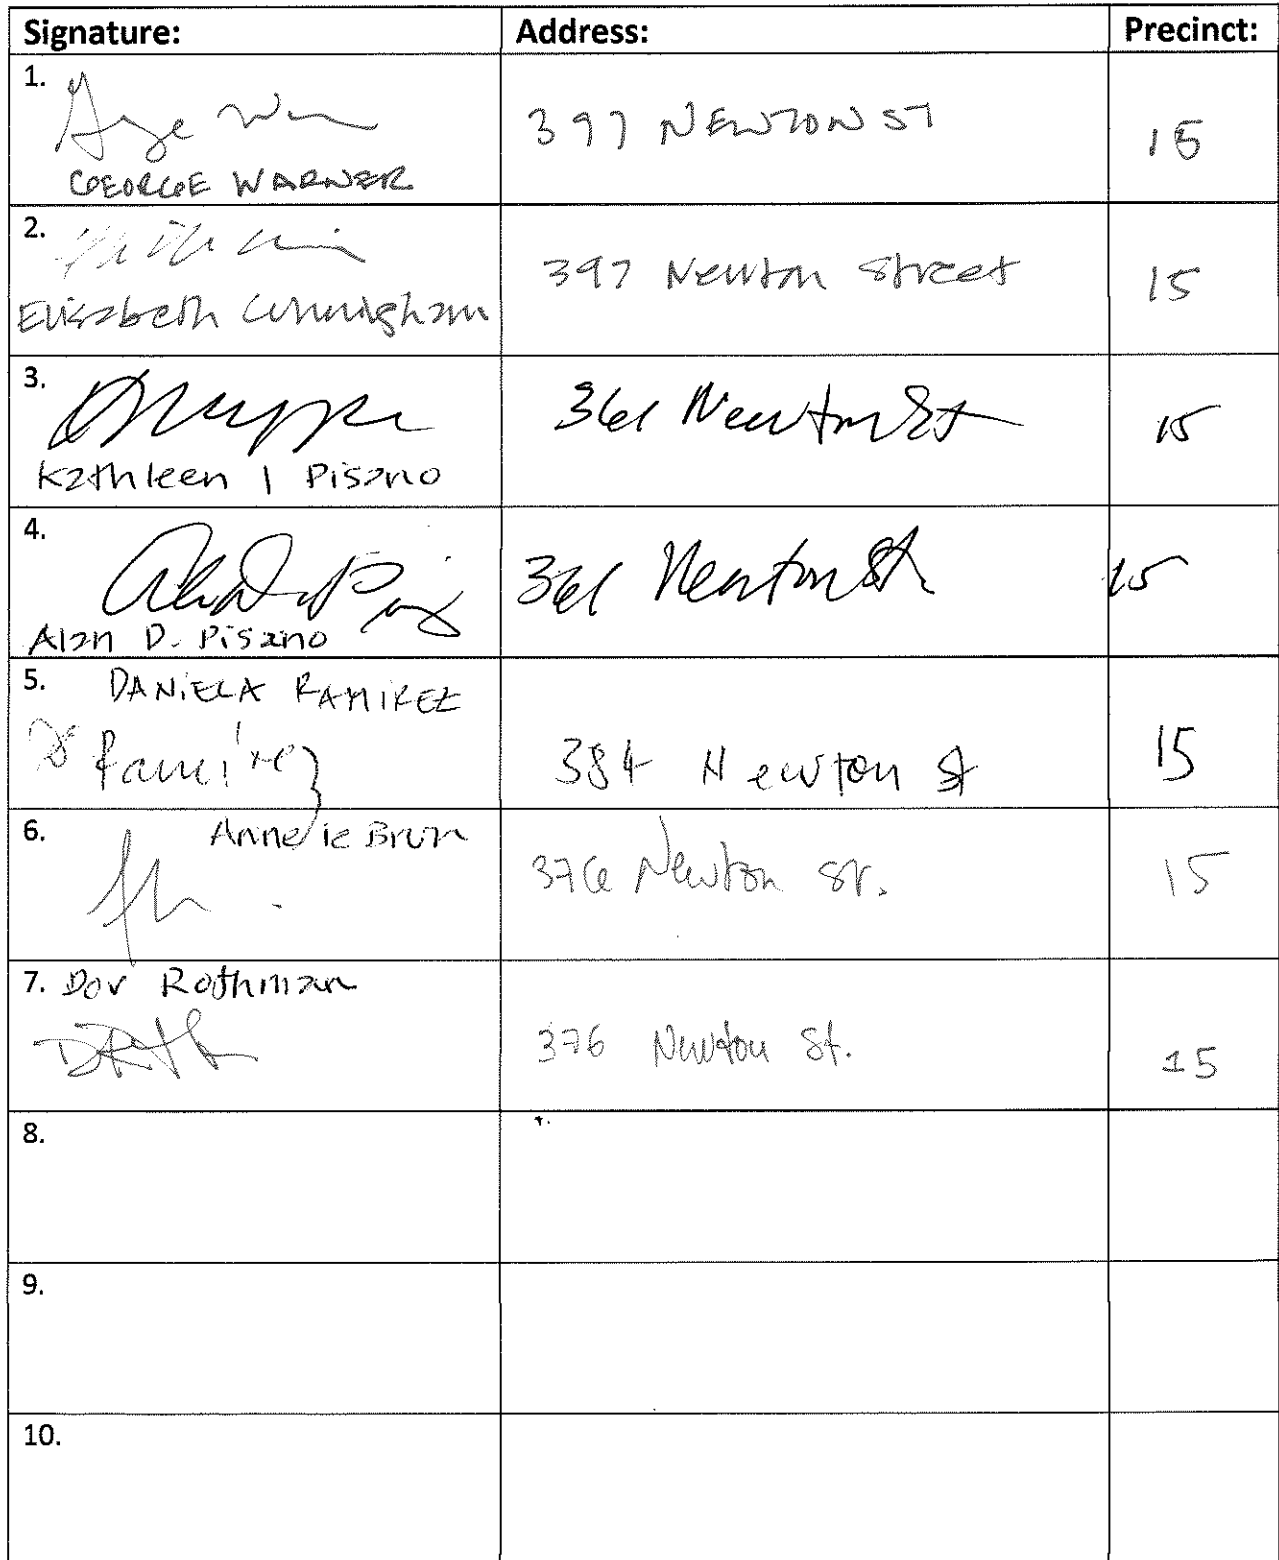 Signature: Address: Precinct:
1.
397 NEWTON ST 15
GEORGE WARNER
2.
397 Newton Street 15
Elizabeth Cunningham
3.
361 Newton St 15
Kathleen I Pisano
4.
361 Newton St 15
Alan D. Pisano
5. DANIELA RAMIREZ
D Ramirez 384 Newton St 15
6. Annelie Brun
376 Newton St. 15
7. Dov Rothman
376 Newton St. 15
8.
9.
10.